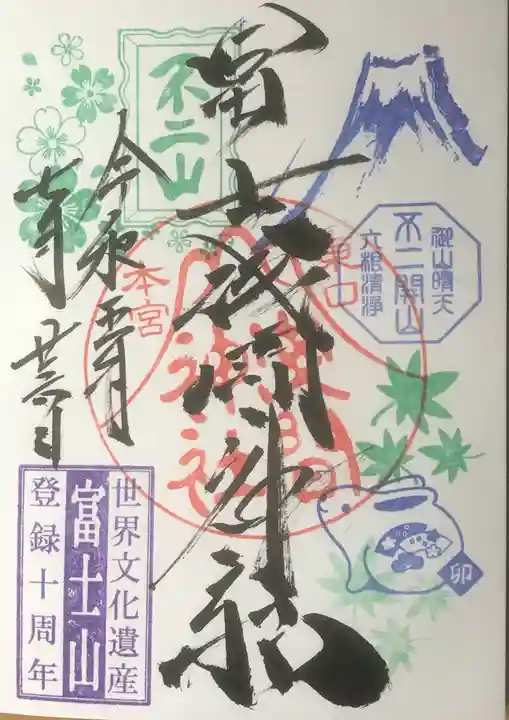 冨士浅間神社
不二山
御山晴天
不二開山
六根清浄
東口
本宮
神社
令和
五年
霜月
卯
世界文化遺産
富士山
登録十周年